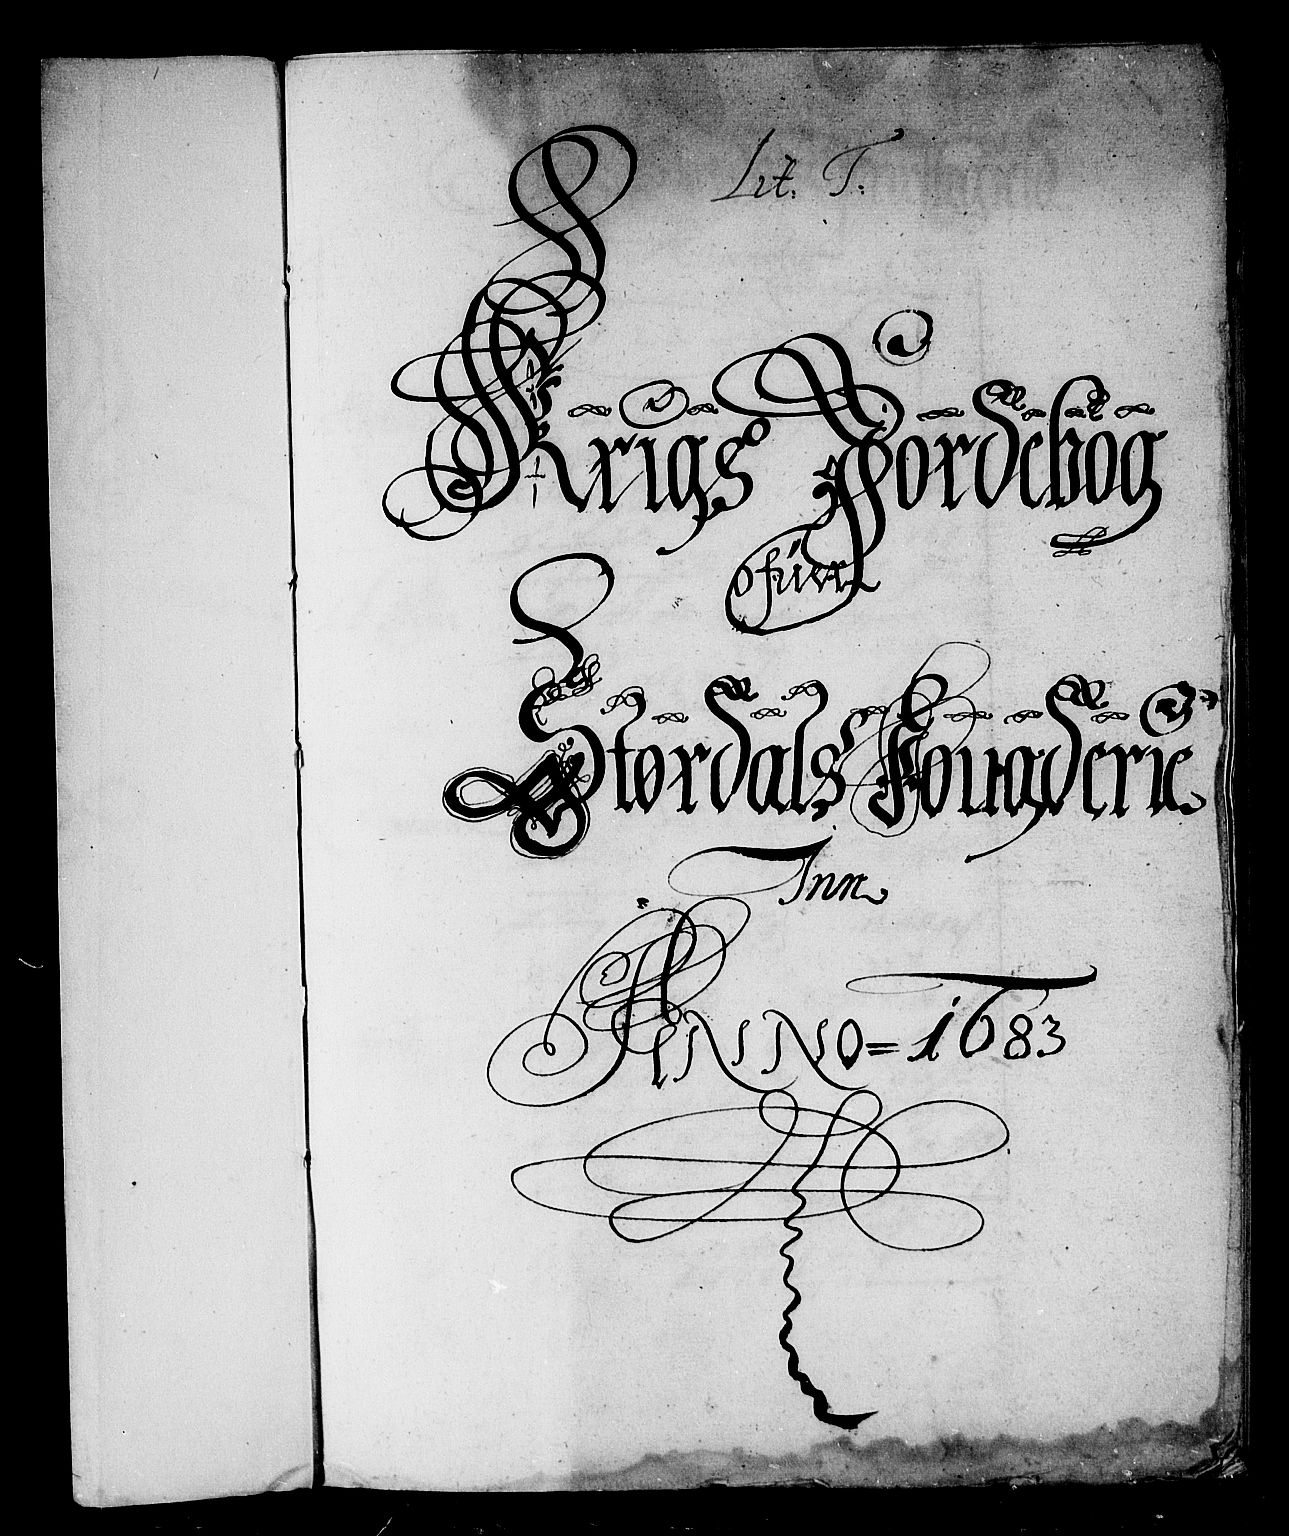 Lit. T.
Krigs Jordebog
ofüer
Størdals Fougderie
Inn
ANNO = 1683